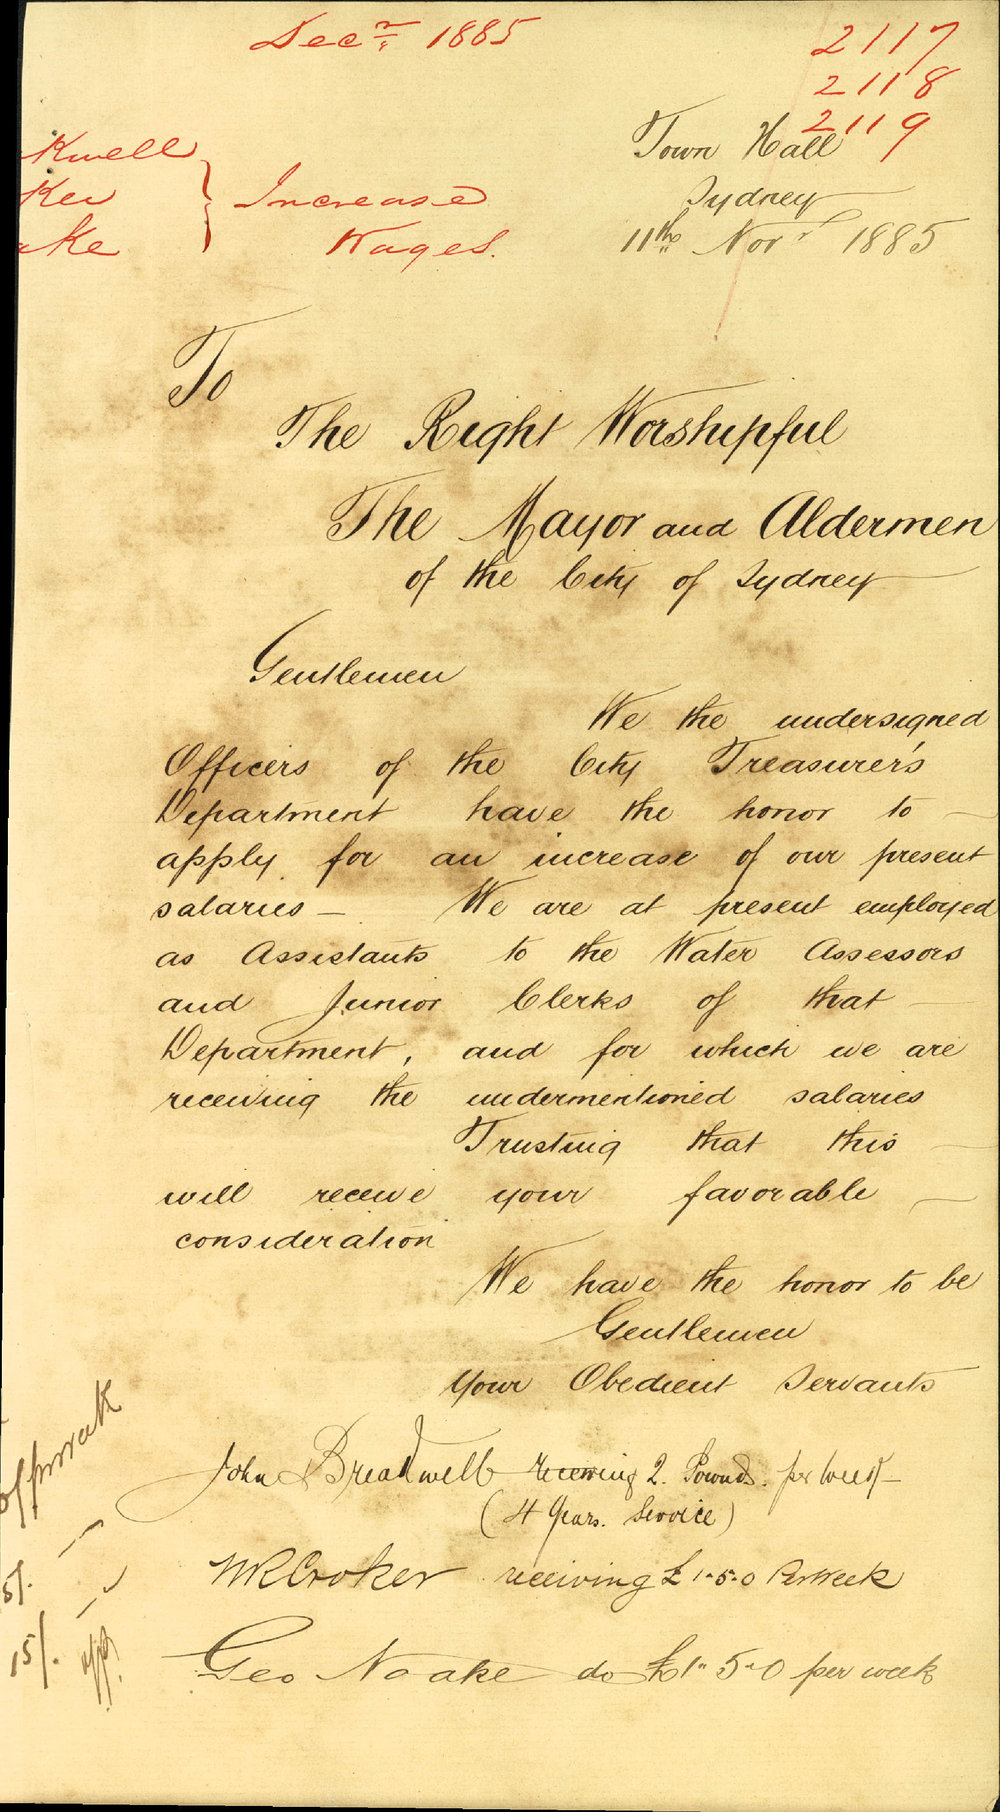 Decr 1885
2117
2118
2119
kwell
ker } Increase
ake Wages.
Town Hall
Sydney
11th Novr 1885
To
The Right Worshipful
The Mayor and Aldermen
of the City of Sydney
Gentlemen
We the undersigned
Officers of the City Treasurer's
Department have the honor to
apply for an increase of our present
salaries — We are at present employed
as Assistants to the Water Assessors
and Junior Clerks of that
Department, and for which we are
receiving the undermentioned salaries
Trusting that this
will receive your favorable
consideration
We have the honor to be
Gentlemen
Your Obedient Servants
John Breadwell receiving 2 Pounds. per week
(4 Years. Service)
WR Croker receiving £1-5-0 Per Week
Geo Noake do £1"5"0 per week
of per week
5/.
15/.